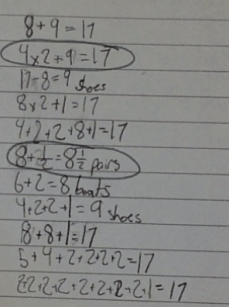 8+9=17
4×2+9=17
17-8=9 shoes
8×2+1=17
4+2+2+8+1=17
8+½=8½ pairs
6+2=8 boats
4+2+2+1=9 shoes
8+8+1=17
5+4+2+2+2+2=17
2+2+2+2+2+2+2+2+1=17